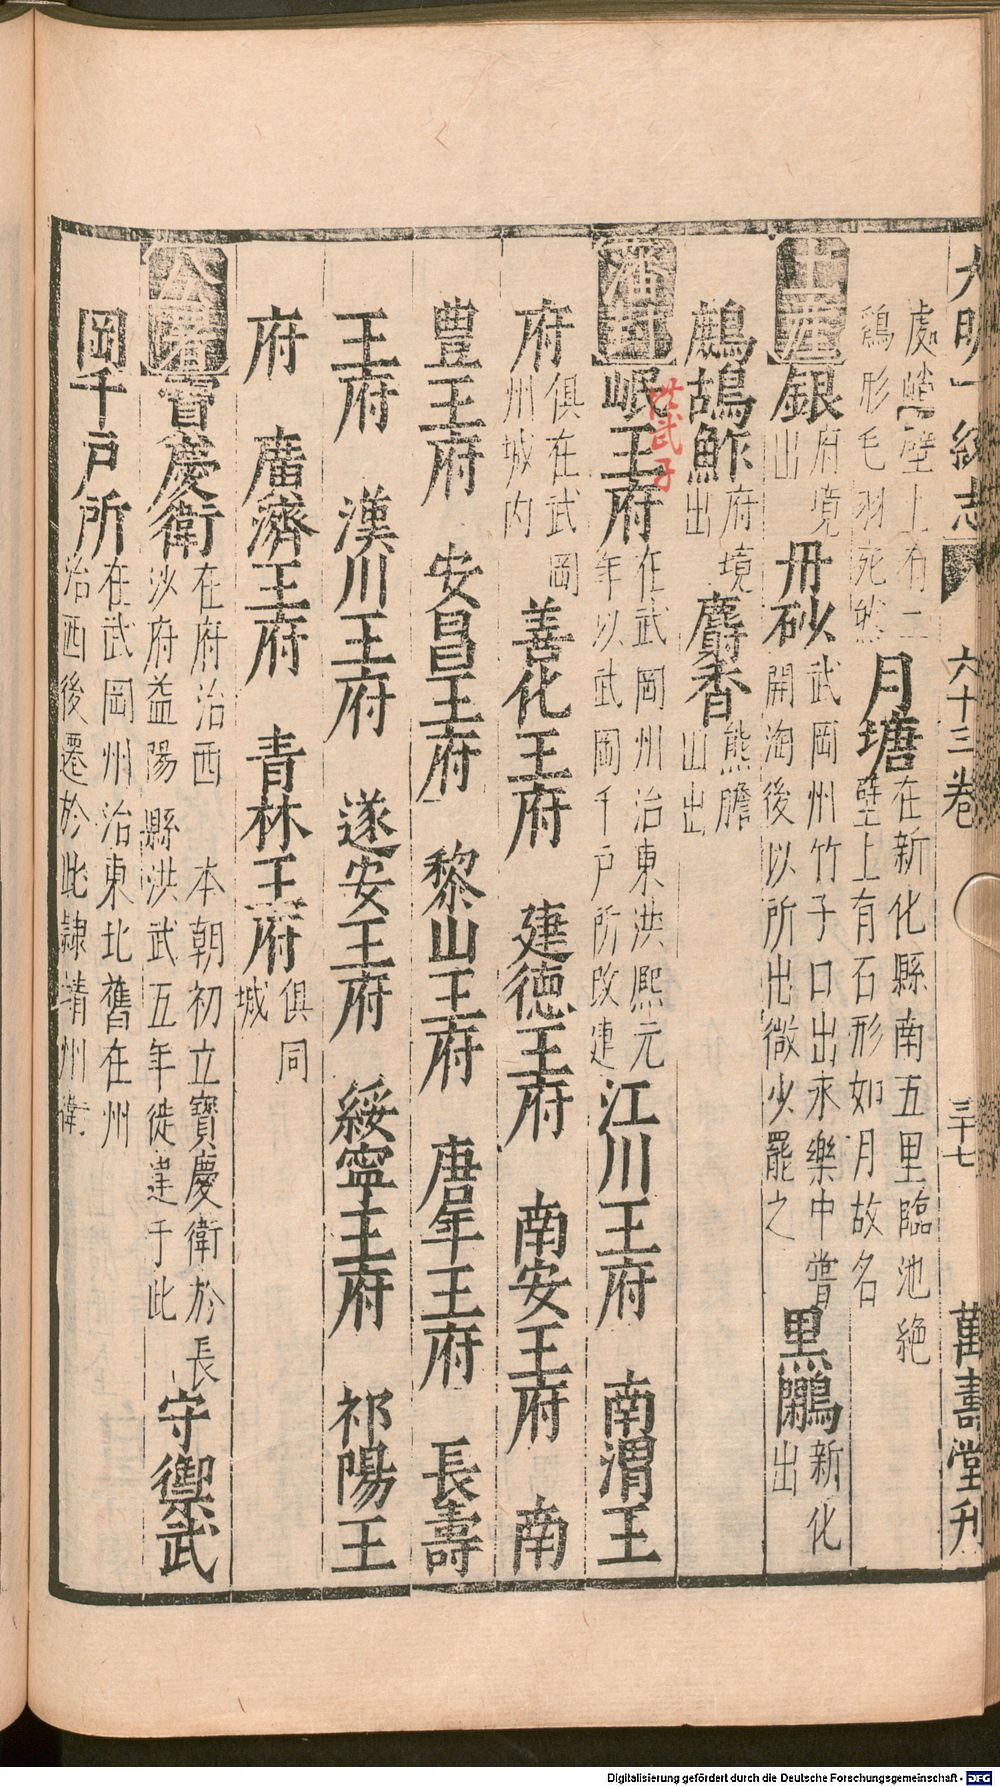 大明一統志 六十三卷 三十七 萬壽堂刋
處峭壁上有一
鷄形毛羽死然
月塘
在新化縣南五里臨池絶
壁上有石形如月故名
土産
銀
府境
出
丹砂
武岡州竹子口出永樂中嘗
開淘後以所出微少罷之
黒鷳
新化
出
鷓鴣鮓
府境
出
麝香
熊膽
山出
藩封
岷王府
洪武子
在武岡州治東洪熈元
年以武岡千戸所改建
江川王府 南渭王
府
俱在武岡
州城内
善化王府 建德王府 南安王府 南
豊王府 安昌王府 黎山王府 唐年王府 長壽
王府 漢川王府 遂安王府 綏寧王府 祁陽王
府 廣濟王府 青林王府
俱同
城
公署
寶慶衛
在府治西 本朝初立寶慶衛於長
沙府益陽縣洪武五年徙建于此
守禦武
岡千戸所
在武岡州治東北舊在州
治西後遷於此隷靖州衛
Digitalisierung gefördert durch die Deutsche Forschungsgemeinschaft - DFG